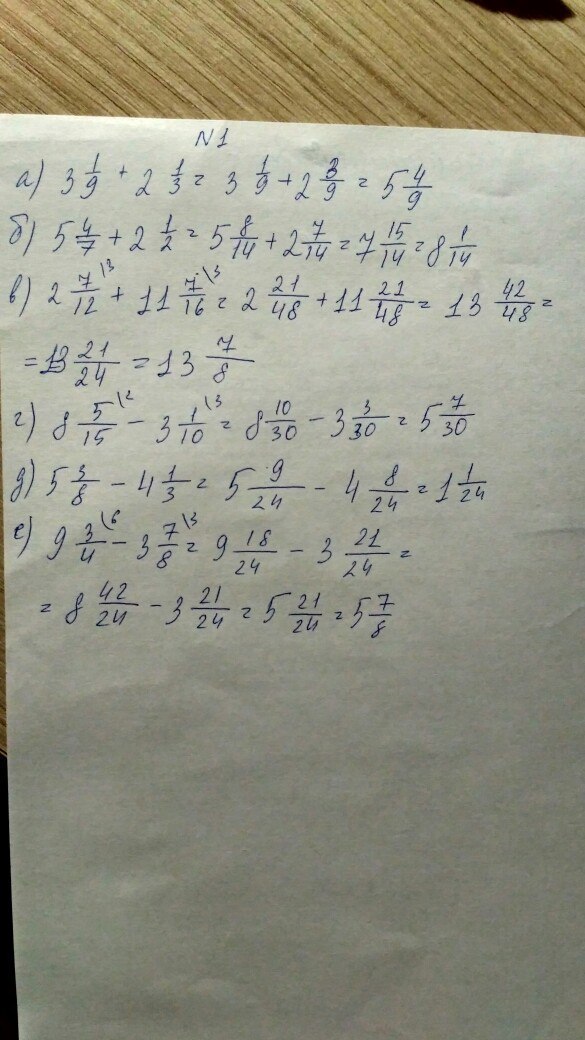 N1
а) 3 1/9 + 2 1/3 = 3 1/9 + 2 3/9 = 5 4/9
б) 5 4/7 + 2 1/2 = 5 8/14 + 2 7/14 = 7 15/14 = 8 1/14
в) 2 7/12 \3 + 11 7/16 \3 = 2 21/48 + 11 21/48 = 13 42/48 =
= 13 21/24 = 13 7/8
г) 8 5/15 \2 - 3 1/10 \3 = 8 10/30 - 3 3/30 = 5 7/30
д) 5 3/8 - 4 1/3 = 5 9/24 - 4 8/24 = 1 1/24
е) 9 3/4 \6 - 3 7/8 \3 = 9 18/24 - 3 21/24 =
= 8 42/24 - 3 21/24 = 5 21/24 = 5 7/8